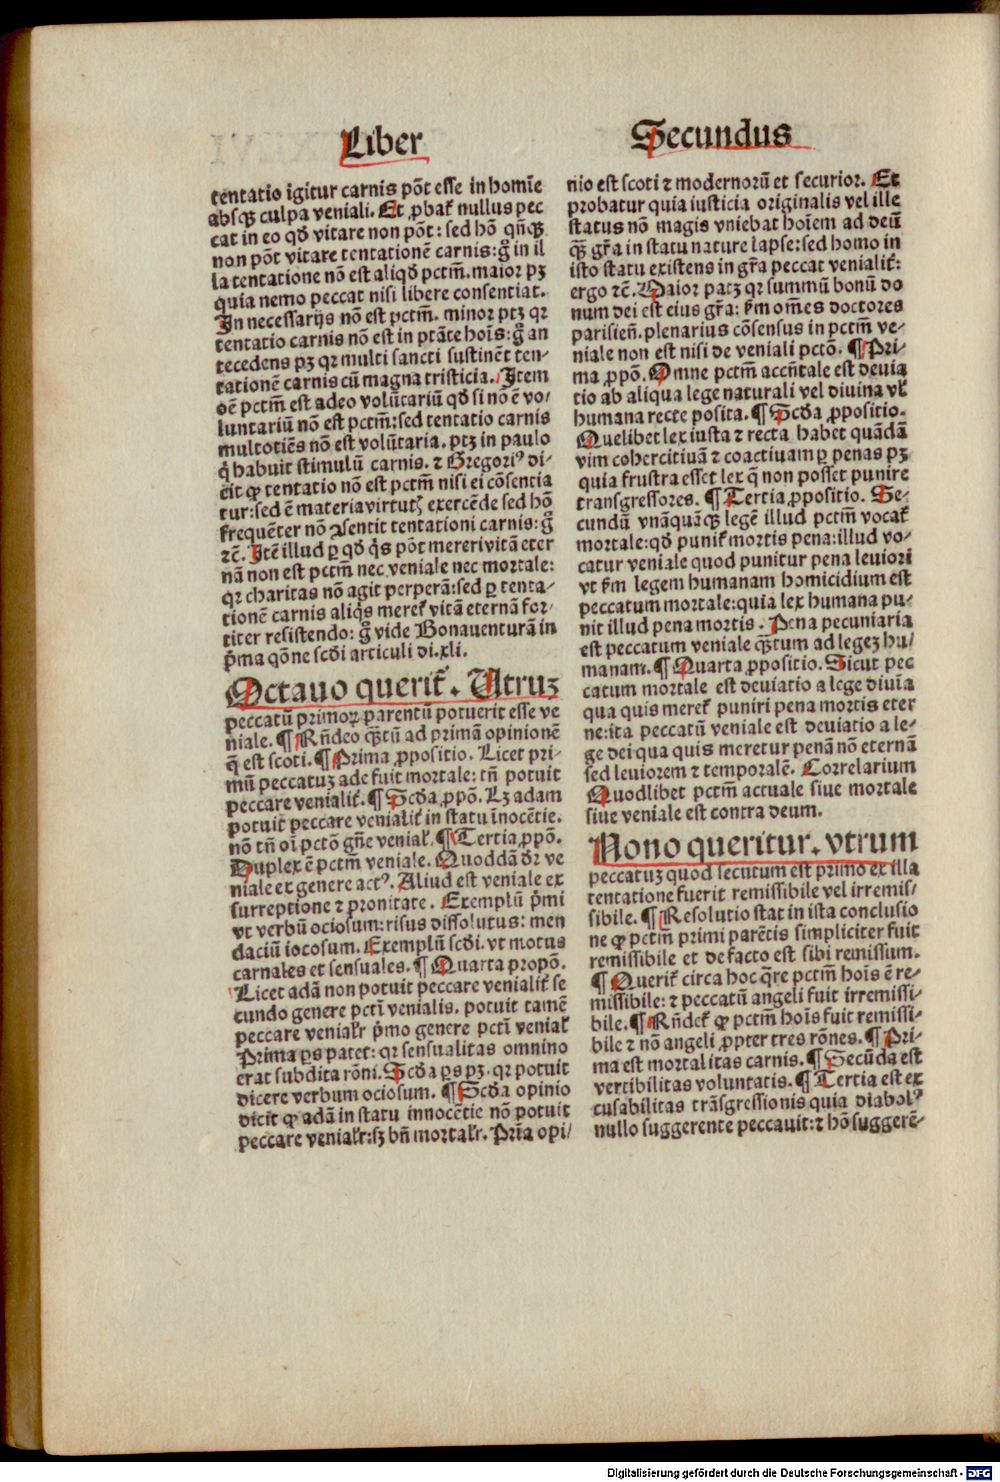 Liber
Secundus
tentatio igitur carnis põt esse in homĩe
absqꝫ culpa veniali. Et ꝓbat᷒ nullus pec
cat in eo qď vitare non põt: sed hõ qñqꝫ
non põt vitare tentationẽ carnis: g̊ in il
la tentatione nõ est aliqď pctm̃. maior pꝫ
quia nemo peccat nisi libere consentiat.
In necessarijs nõ est pctm̃. minor ptꝫ qꝛ
tentatio carnis nõ est in ptãte hoĩs: g̊ an
tecedens pꝫ qꝛ multi sancti sustinẽt ten-
tationẽ carnis cũ magna tristicia. Item
oẽ pctm̃ est adeo volũtariũ qď si nõ ẽ vo/
luntariũ nõ est pctm̃: sed tentatio carnis
multotiẽs nõ est volũtaria. ptꝫ in paulo
q̇ habuit stimulũ carnis. ⁊ Gregoriꝰ di-
cit ꝙ tentatio nõ est pctm̃ nisi ei cõsentia
tur: sed ẽ materia virtutꝭ exercẽde sed hõ
frequẽter nõ ꝯsentit tentationi carnis: g̊
⁊c̃. Itẽ illud ꝑ qď q̇s põt mereri vitã eter
nã non est pctm̃ nec veniale nec mortale:
qꝛ charitas nõ agit perperã: sed ꝑ tenta-
tionẽ carnis aliq̇s meret᷒ vitã eternã for-
titer resistendo: g̊ vide Bonauenturã in
p̃ma qõne scďi articuli di. xli.
Octauo querit᷒. Utruꝫ
peccatũ primoꝝ parentũ potuerit esse ve
niale. ¶ Rñdeo q̃ꝫtũ ad primã opinionẽ
q̃ est scoti. ¶ Prima ꝓpositio. Licet pri-
mũ peccatuꝫ ade fuit mortale: tñ potuit
peccare venialit᷒. ¶ Scďa ꝓpõ. Lꝫ adam
potuit peccare venialit᷒ in statu ĩnocẽtie.
nõ tñ oĩ pctõ gñe venial᷒. ¶ Tertia ꝓpõ.
Duplex ẽ pctm̃ veniale. Quoddã dꝛ̃ ve
niale ex genere actꝰ. Aliud est veniale ex
surreptione ⁊ pronitate. Exemplũ p̃mi
vt verbũ ociosum: risus dissolutus: men
daciũ iocosum. Exemplũ scďi. vt motus
carnales et sensuales. ¶ Quarta propõ.
Licet adã non potuit peccare venialit᷒ se
cundo genere pctĩ venialis. potuit tamẽ
peccare venialr̃ p̃mo genere pctĩ venial᷒
Prima ꝑs patet: qꝛ sensualitas omnino
erat subdita rõni. Scďa ꝑs pꝫ. qꝛ potuit
dicere verbum ociosum. ¶ Scďa opinio
dicit ꝙ adã in statu innocẽtie nõ potuit
peccare venialr̃: sꝫ bñ mortalr̃. Prĩa opi/
nio est scoti ⁊ modernoꝝ et securior. Et
probatur quia iusticia originalis vel ille
status nõ magis vniebat hoĩem ad deũ
q̃ꝫ gr̃a in statu nature lapse: sed homo in
isto statu existens in gr̃a peccat venialit᷒:
ergo ⁊c̃. Maior patꝫ qꝛ summũ bonũ do
num dei est eius gr̃a: ẜm om̃es doctores
parisieñ. plenarius cõsensus in pctm̃ ve-
niale non est nisi de veniali pctõ. ¶ Pri-
ma ꝓpõ. Omne pctm̃ accñtale est deuia
tio ab aliqua lege naturali vel diuina vl᷒
humana recte posita. ¶ Scďa ꝓpositio.
Quelibet lex iusta ⁊ recta habet quãdã
vim cohercitiuã ⁊ coactiuam ꝑ penas pꝫ
quia frustra esset lex q̃ non posset punire
transgressores. ¶ Tertia ꝓpositio. Se-
cundũ vnãquãqꝫ legẽ illud pctm̃ vocat᷒
mortale: qď punit᷒ mortis pena: illud vo-
catur veniale quod punitur pena leuiori
vt ẜm legem humanam homicidium est
peccatum mortale: quia lex humana pu-
nit illud pena mortis. Pena pecuniaria
est peccatum veniale q̃ꝫtum ad legeꝫ hu/
manam. ¶ Quarta ꝓpositio. Sicut pec
catum mortale est deuiatio a lege diuĩa
qua quis meret᷒ puniri pena mortis eter
ne: ita peccatũ veniale est deuiatio a le-
ge dei qua quis meretur penã nõ eternã
sed leuiorem ⁊ temporalẽ. Correlarium
Quodlibet pctm̃ actuale siue mortale
siue veniale est contra deum.
Nono queritur. vtrum
peccatuꝫ quod secutum est primo ex illa
tentatione fuerit remissibile vel irremis/
sibile. ¶ Resolutio stat in ista conclusio
ne ꝙ pctm̃ primi parẽtis simpliciter fuit
remissibile et de facto est sibi remissum.
¶ Querit᷒ circa hoc q̃re pctm̃ hoĩs ẽ re-
missibile: ⁊ peccatũ angeli fuit irremissi-
bile. ¶ Rñdet᷒ ꝙ pctm̃ hoĩs fuit remissi-
bile ⁊ nõ angeli ꝓpter tres rõnes. ¶ Pri-
ma est mortalitas carnis. ¶ Secũda est
vertibilitas voluntatis. ¶ Tertia est ex
cusabilitas trãsgressionis quia diabolꝰ
nullo suggerente peccauit: ⁊ hõ suggerẽ-
Digitalisierung gefördert durch die Deutsche Forschungsgemeinschaft - DFG